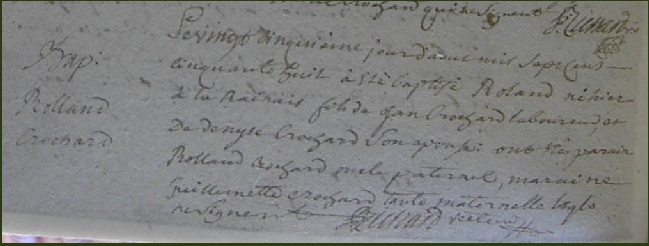 Crochard qui ne signent
Bap:
Rolland
Crochard
Le vingt cinquieme jour d'aout mil sept cens
cinquante huit à été baptisé Roland né hier
à la fils de Jan Crochard laboureur, et
De denyse Crochard Son epouse ont été parain
Rolland crochard oncle paternel, maraine
Guillemette crochard tante maternelle
ne signent